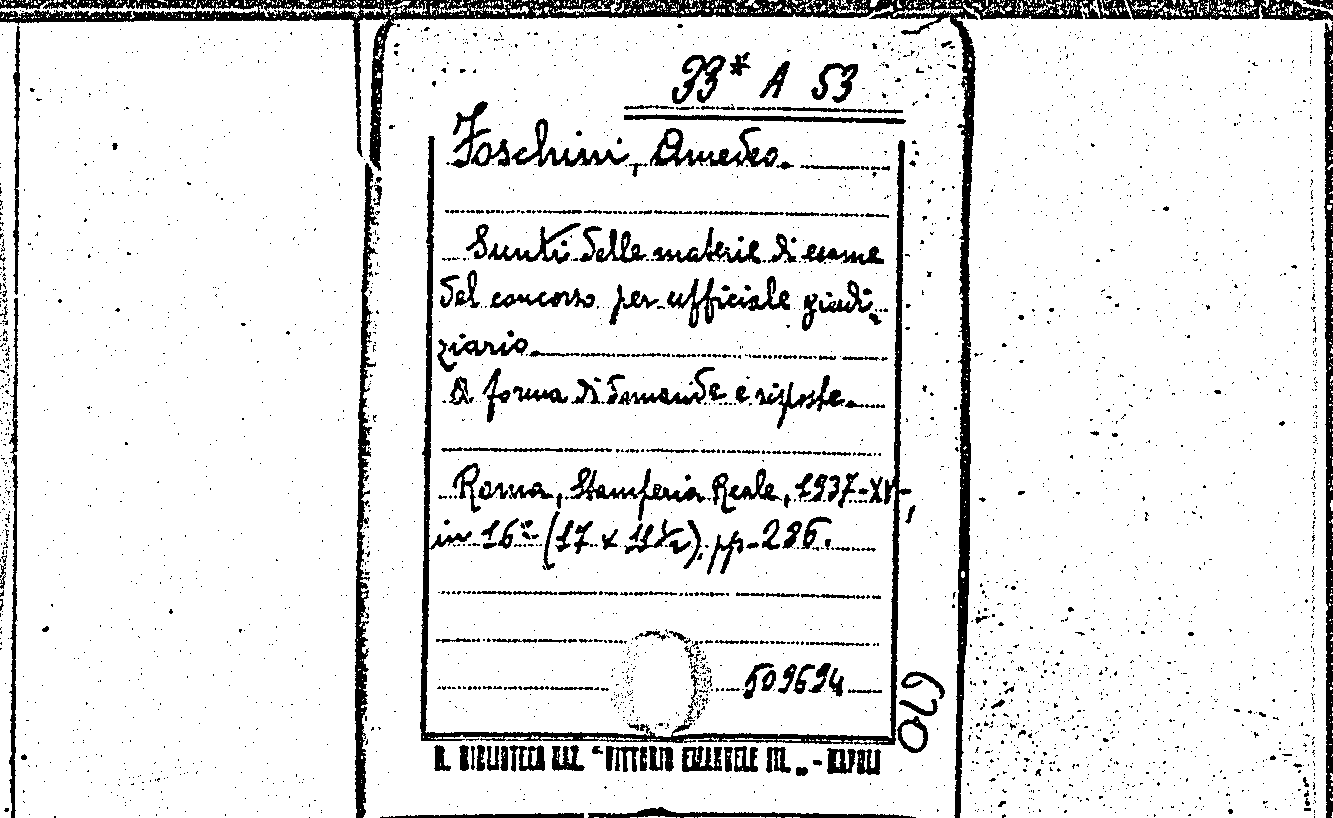 33* A 53
Foschini, Amedeo.
Sunti delle materie di esame
del concorso per ufficiale giudi-
ziario.
A forma di domande e risposte.
Roma, Stamperia Reale, 1937-XV-,
in 16° (17 x 11½), pp. 286.
509694
670
R. BIBLIOTECA NAZ. "VITTORIO EMANUELE III„ - NAPOLI